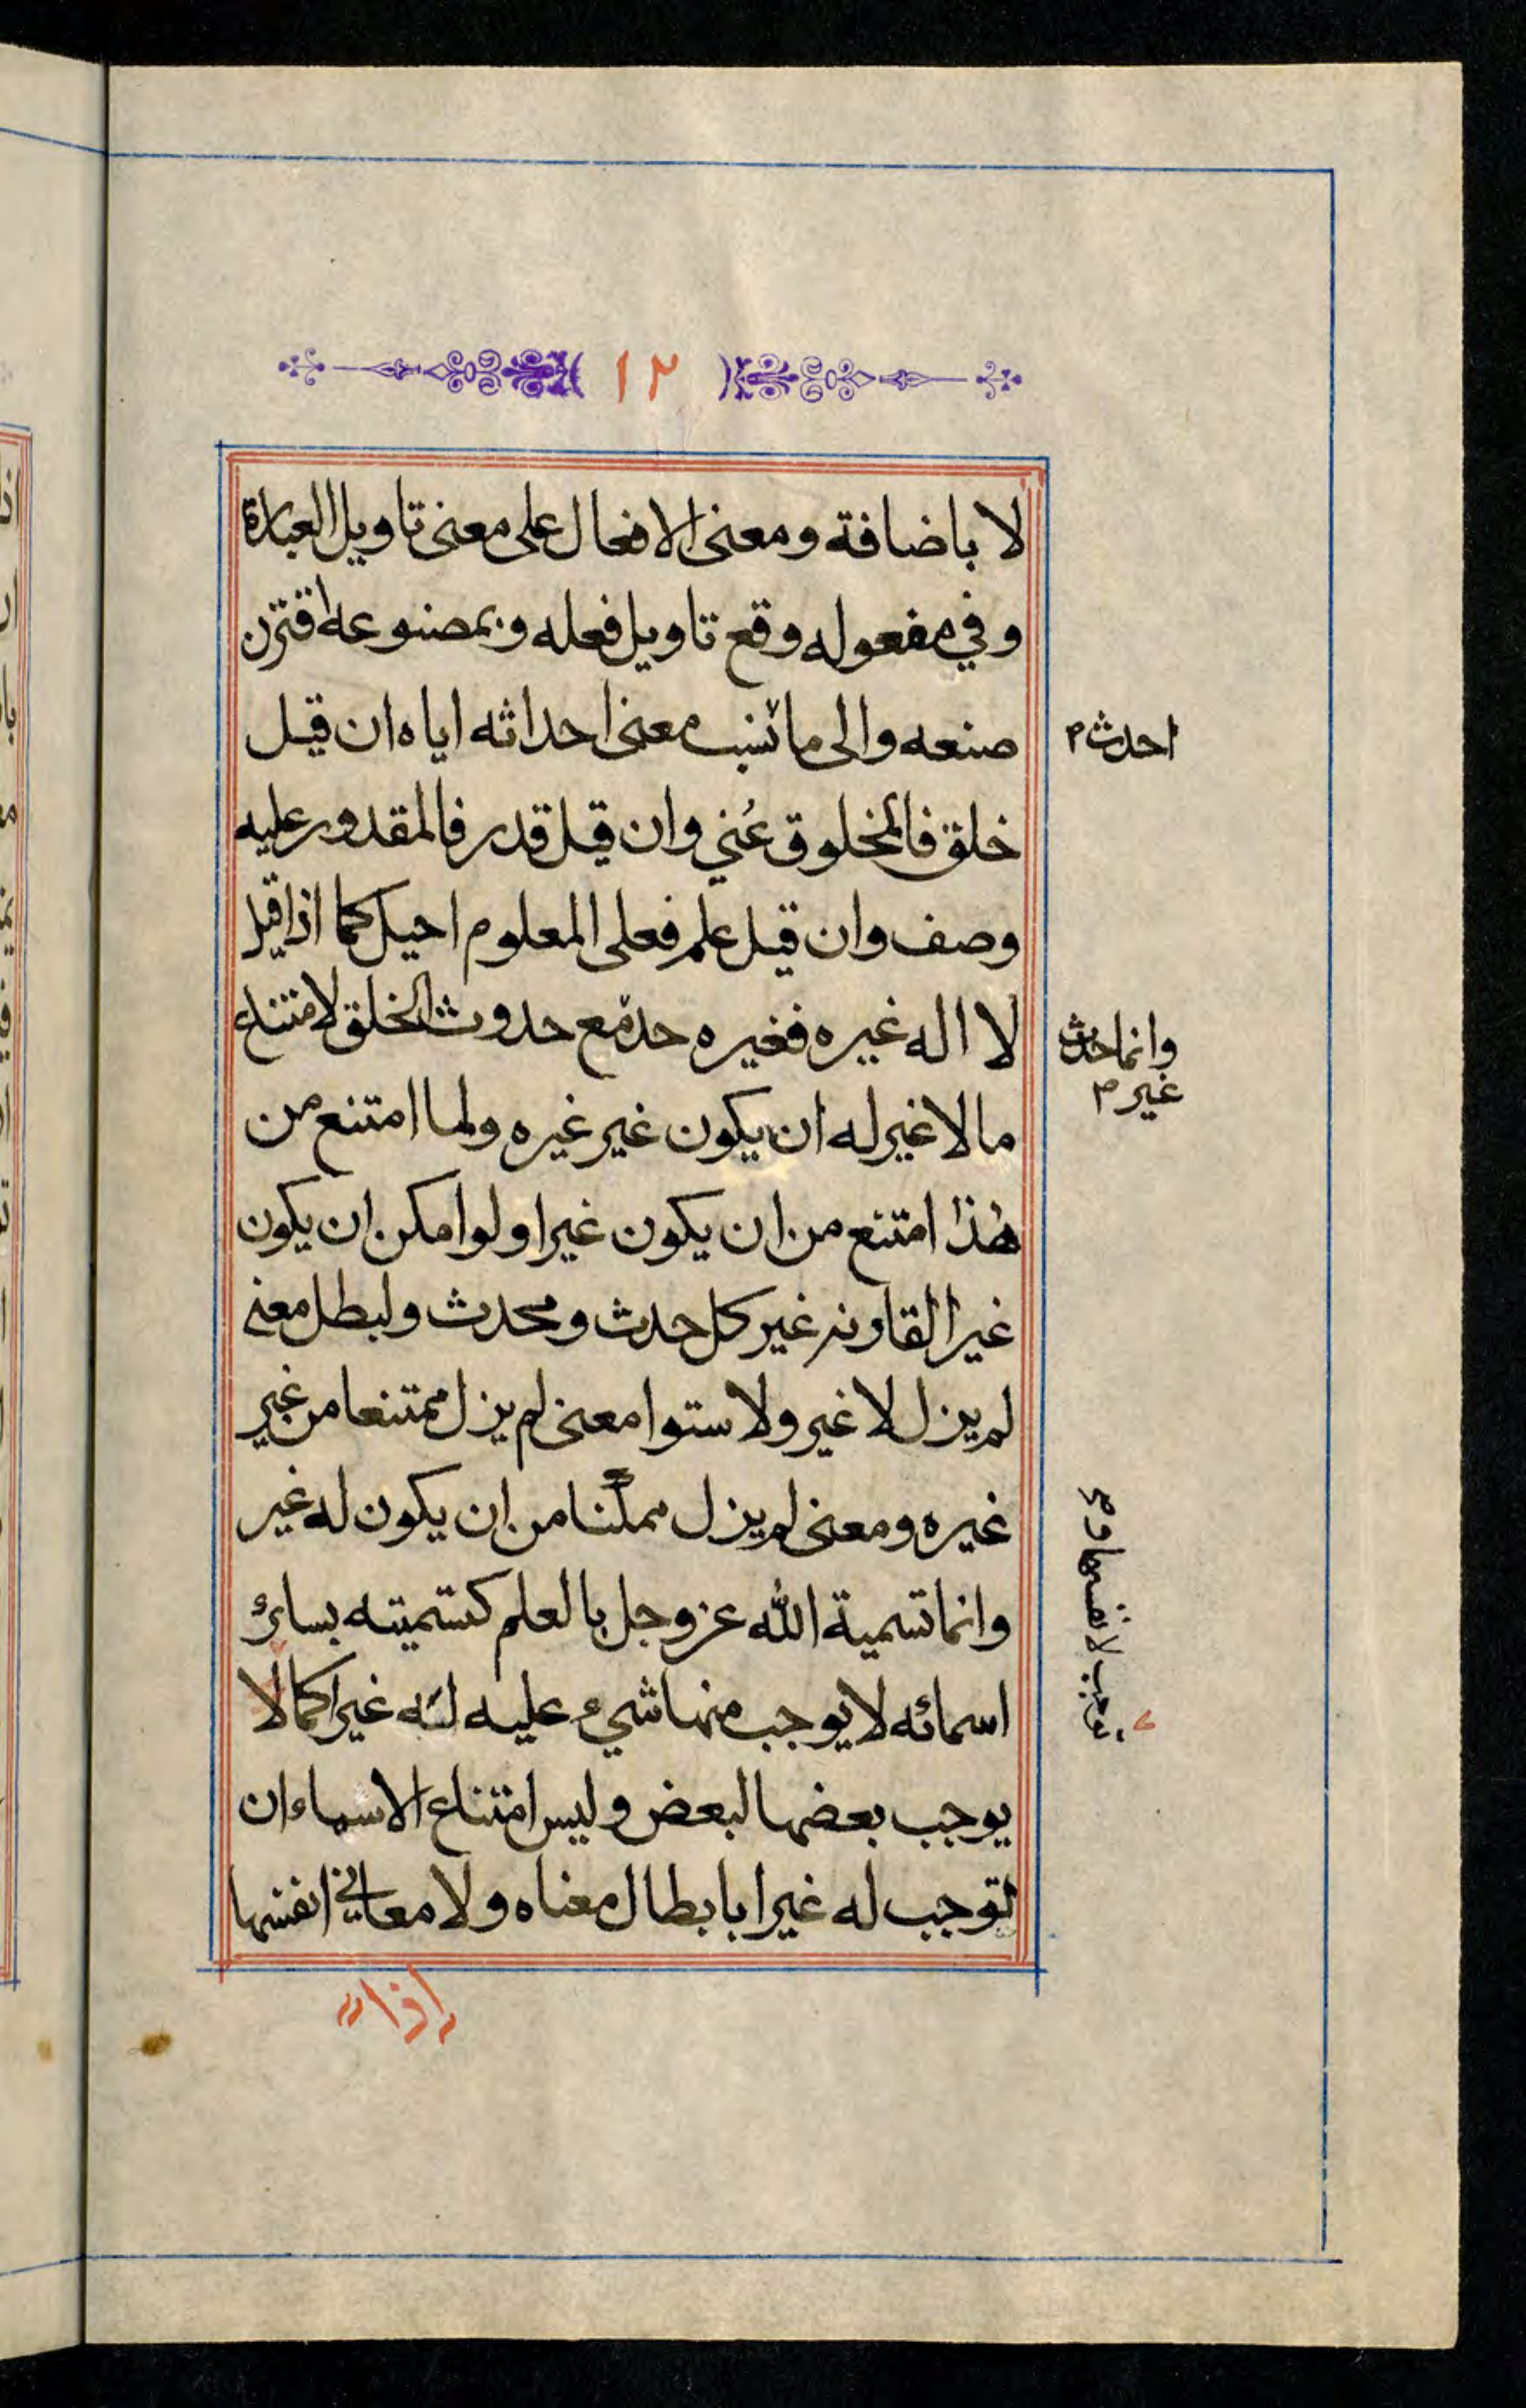 ١٢
لا باضافة ومعنى الافعال على معنى تاويل العبارة
وفي مفعوله وقع تاويل فعله وبمصنوعه اقترن
صنعه والى ما نسب معنى احداثه اياه ان قيل
احدث م
خلق فالمخلوق عُني وان قيل قدر فالمقدور عليه
وصف وان قيل علم فعلى المعلوم احيل كما اذا قيل
لا اله غيره فغيره حد مع حدوث الخلق لامتناع
وانما حدث
غير م
ما لا غير له ان يكون غير غيره ولما امتنع من
هذا امتنع من ان يكون غيرا ولو امكن ان يكون
غيرا لقاونه غير كل حدث ومحدث ولبطل معنى
لم يزل لا غير ولاستوا معنى لم يزل ممتنعا من غير
غيره ومعنى لم يزل ممكنا من ان يكون له غير
وانما تسمية الله عز وجل بالعلم كتسميته بسائر
اسمائه لا يوجب منها شيء عليه له غيرا كما لا
توجب لانفسها
يوجب بعضها لبعض وليس امتناع الاسماء ان
توجب له غيرا بابطال معناه ولا معاني انفسها
اذا